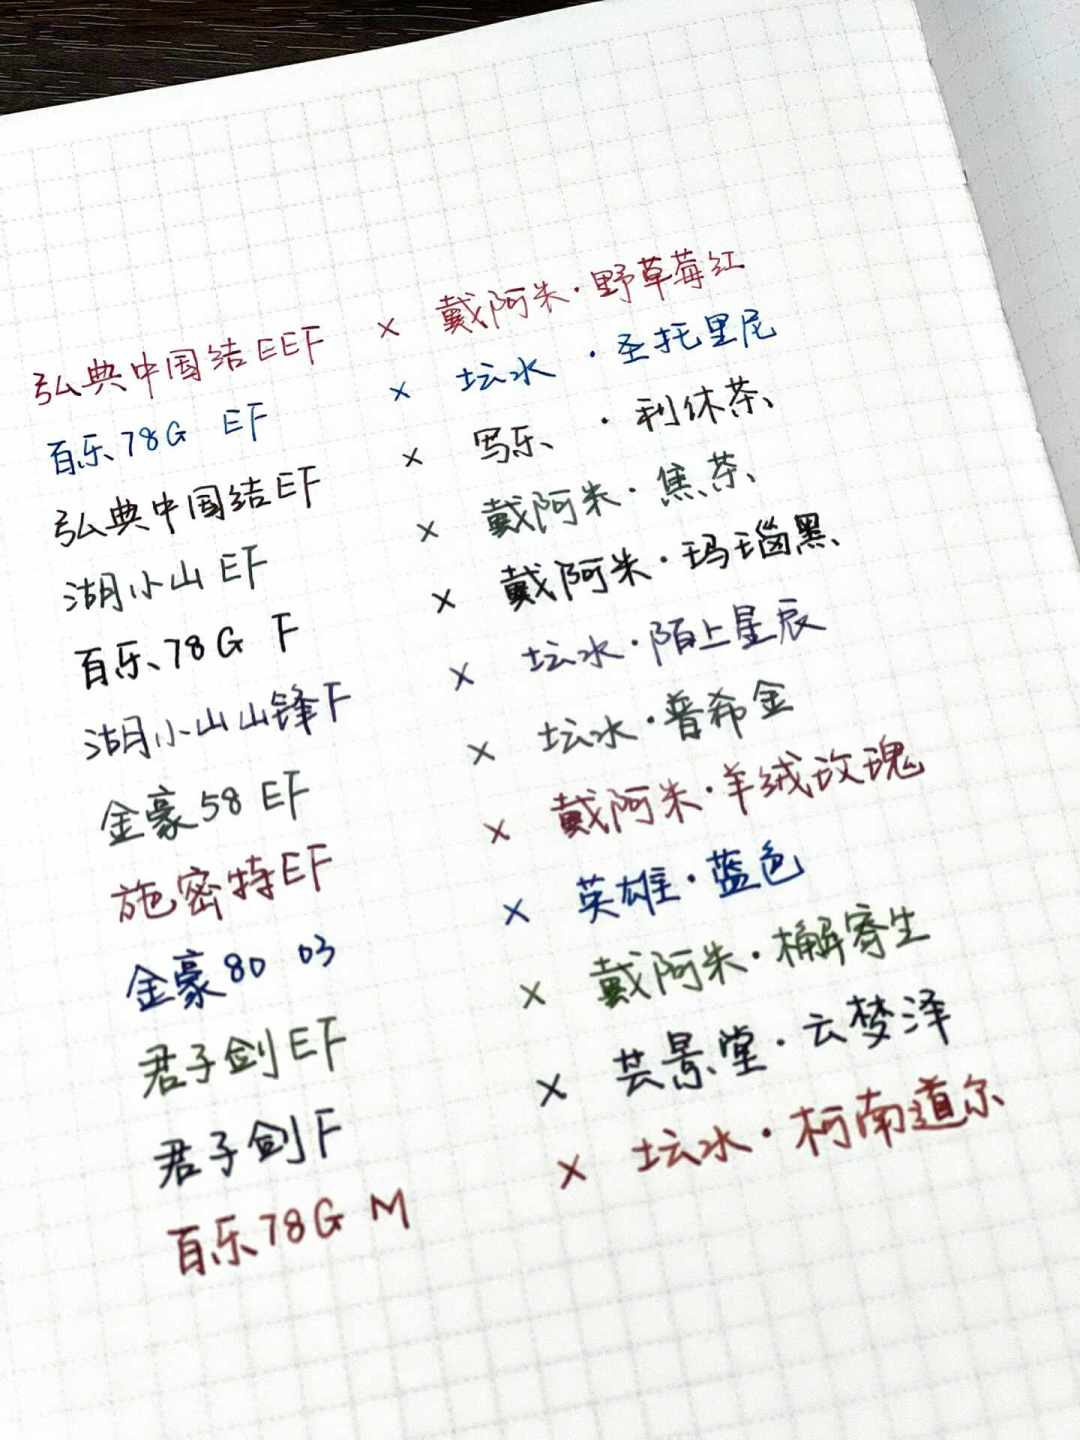 弘典中国结EEF × 戴阿朱·野草莓红
百乐78G EF × 坛水·圣托里尼
弘典中国结EF × 写乐·利休茶
湖小山EF × 戴阿朱·焦茶
百乐78G F × 戴阿朱·玛瑙黑
湖小山山锋F × 坛水·陌上星辰
金豪58 EF × 坛水·普希金
施密特EF × 戴阿朱·羊绒玫瑰
金豪80 03 × 英雄·蓝色
君子剑EF × 戴阿朱·槲寄生
君子剑F × 芸景堂·云梦泽
百乐78G M × 坛水·柯南道尔